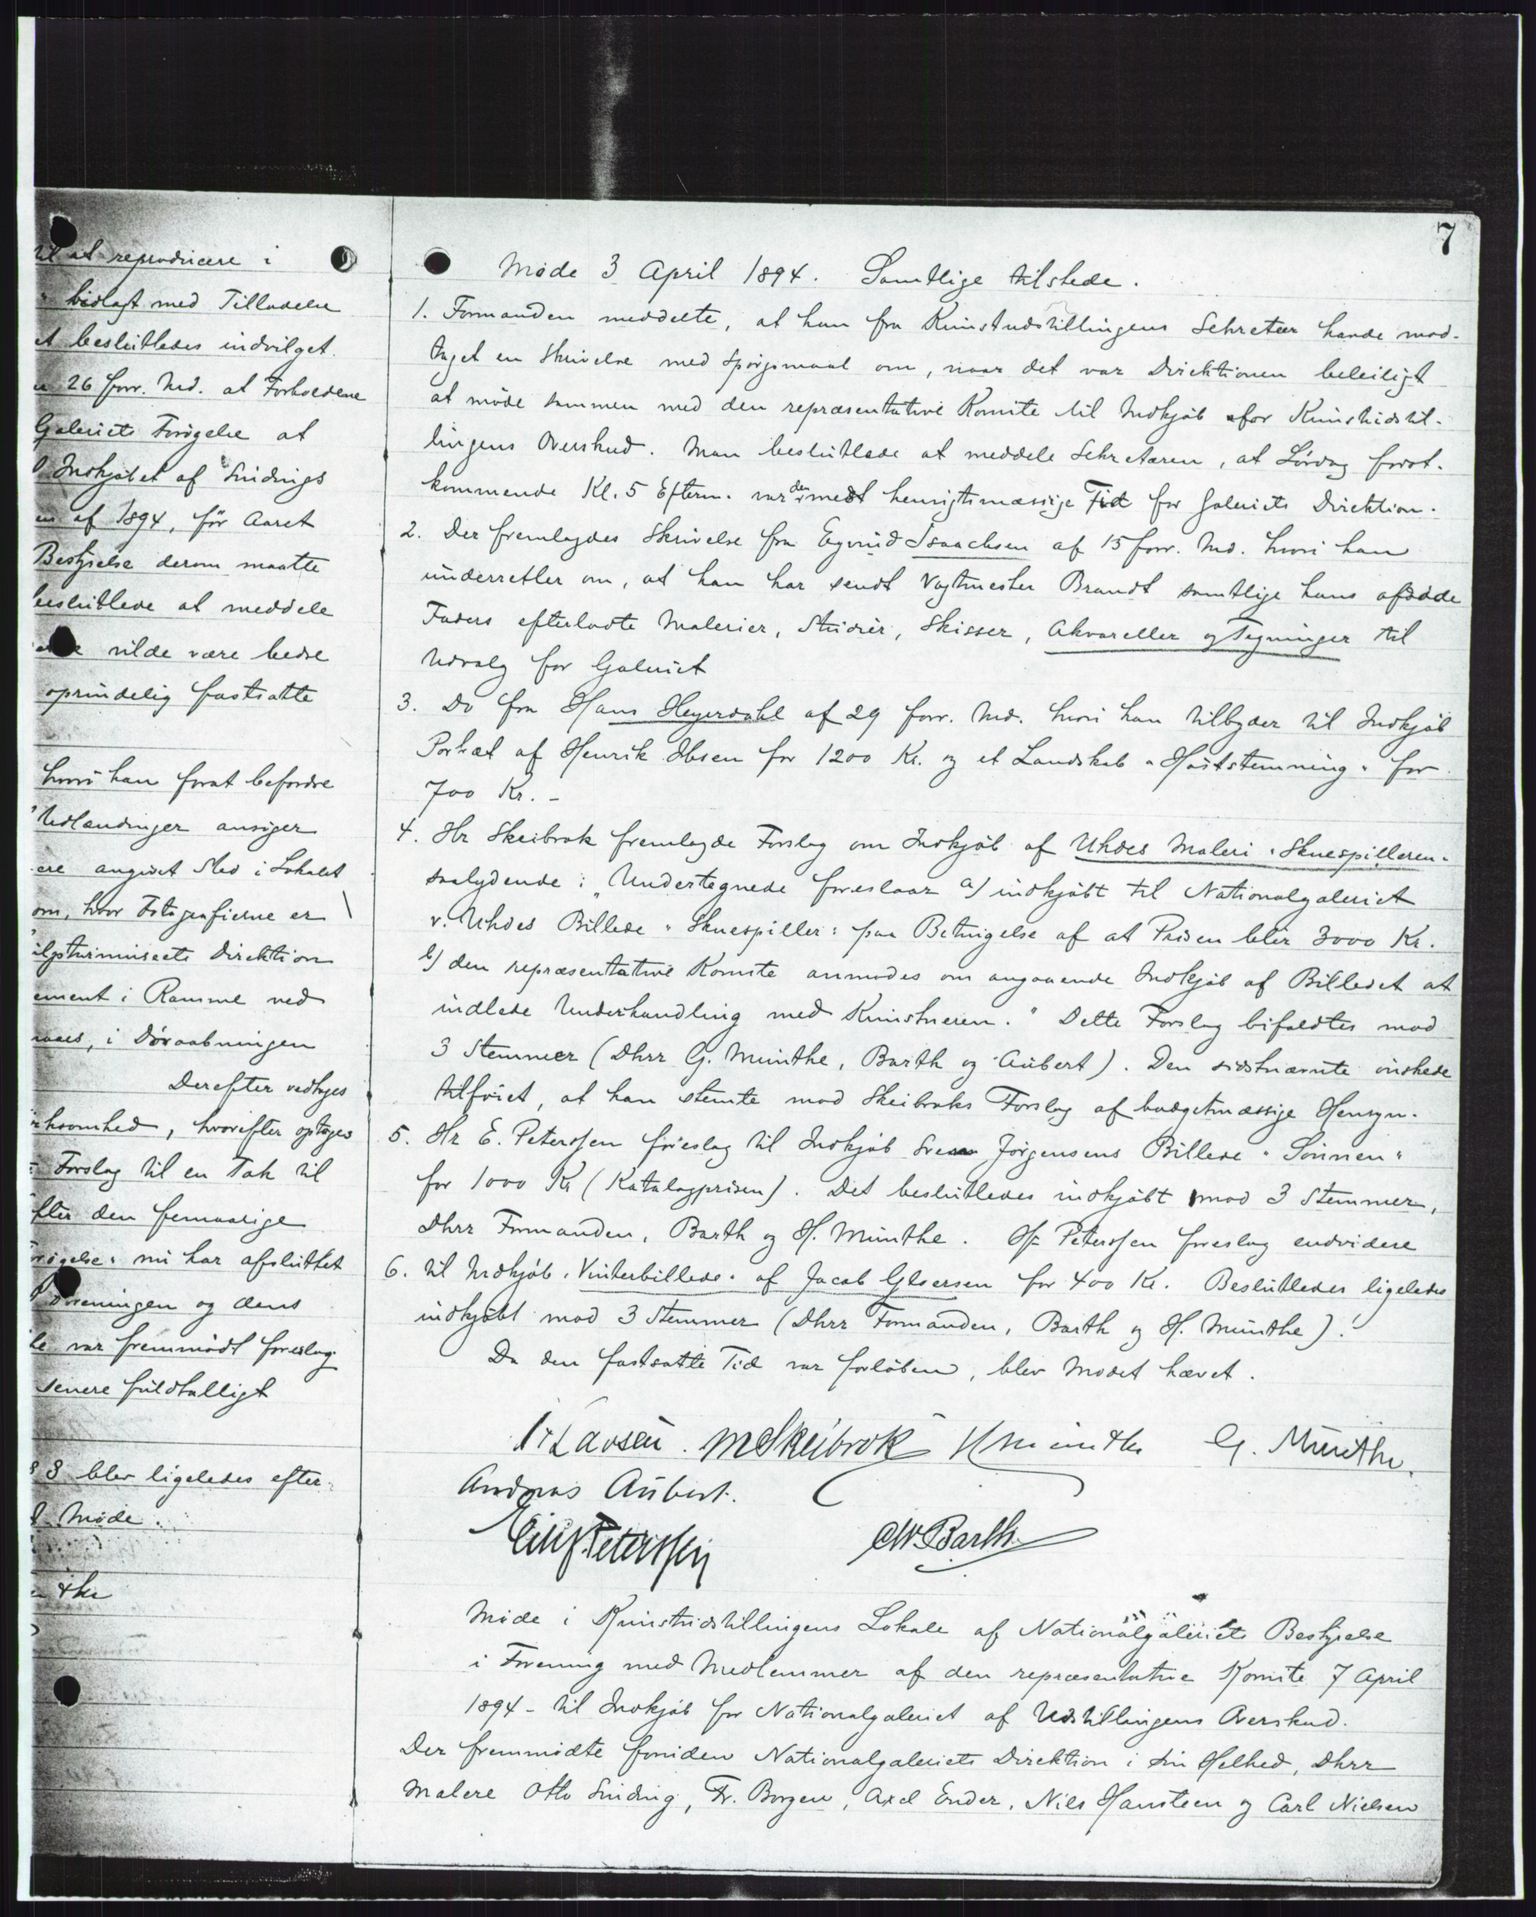 til at reproducere i
bilagt med Tilladelse
et besluttedes indvilget.
26 forr. Md. at Forholdene
Galeriets Forøgelse at
Indkjøbet af Sindings
en af 1894, før Aaret
Bestyrelse derom maatte
besluttede at meddele
vilde være bedre
oprindelig fastsatte
hvori han forat befordre
Udlændinger ansøger
angivet Sted i Lokalet
om, hvor Fotografierne er
Skulpturmuseets Direktion
ement i Ramme ved
i Døraabningen
Derefter vedtoges
rksomhed, hvorefter optoges
Forslag til en Tak til
fter den femaarige
røgelse" nu har afsluttet
Foreningen og dens
var fremmødt foreslog
senere fuldtalligt
3 blev ligeledes efter-
Møde.
7
Møde 3 April 1894. Samtlige tilstede.
1. Formanden meddelte, at han fra Kunstudstillingens Sekretær havde mod-
taget en Skrivelse med Spørgsmaal om, naar det var Direktionen beleiligt
at møde sammen med den repræsentative Komite til Indkjøb for Kunstudstil-
lingens Overskud. Man besluttede at meddele Sekretæren, at Lørdag først-
kommende Kl. 5 Efterm. var den mest hensigtsmæssige Tid for Galeriets Direktion.
2. Der fremlagdes Skrivelse fra Eyvind Isaachsen af 15 forr. Md. hvori han
underretter om, at han har sendt Vagtmester Brandt samtlige hans afdøde
Faders efterladte Malerier, Studier, Skisser, Akvareller og Tegninger til
Udvalg for Galeriet
3. Do fra Hans Heyerdahl af 29 forr. Md. hvori han tilbyder til Indkjøb
Portræt af Henrik Ibsen for 1200 Kr. og et Landskab "Høststemning" for
700 Kr. –
4. Hr Skeibrok fremlagde Forslag om Indkjøb af Uhdes Maleri "Skuespilleren"
saalydende: "Undertegnede foreslaar a) indkjøbt til Nationalgaleriet
v. Uhdes Billede "Skuespiller" paa Betingelse af at Prisen blir 3000 Kr.
b) den repræsentative Komite anmodes om angaaende Indkjøb af Billedet at
indlede Underhandling med Kunstneren." Dette Forslag bifaldtes mod
3 Stemmer (Dhrr G. Munthe, Barth og Aubert). Den sidstnævnte ønskede
tilføiet, at han stemte mod Skeibroks Forslag af budgetmæssige Hensyn.
5. Hr E. Peterssen foreslog til Indkjøb Sven Jørgensens Billede "Sønnen"
for 1000 Kr (Katalogprisen). Det besluttedes indkjøbt mod 3 Stemmer,
Dhrr Formanden, Barth og H. Munthe. Hr Peterssen foreslog endvidere
6. til Indkjøb "Vinterbillede" af Jacob Gløersen for 400 Kr. Besluttedes ligeledes
indkjøbt mod 3 Stemmer (Dhrr Formanden, Barth og H. Munthe).
Da den fastsatte Tid var forløben, blev Mødet hævet.
Larsen. M Skeibrok H Munthe G. Munthe.
Andreas Aubert.
Eilif Peterssen CW. Barth
Møde i Kunstudstillingens Lokale af Nationalgaleriets Bestyrelse
i Forening med Medlemmer af den repræsentative Komite 7 April
1894 – til Indkjøb for Nationalgaleriet af Udstillingens Overskud.
Der fremmødte foruden Nationalgaleriets Direktion i sin Helhed, Dhrr
Malere Otto Sinding, Fr. Borgen, Axel Ender, Nils Hansteen og Carl Nielsen